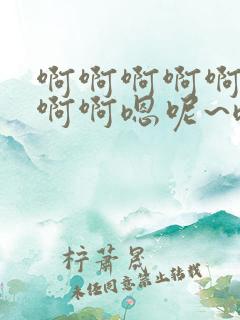 啊啊啊啊啊
啊啊嗯呢~
梓萧晟
未经同意禁止转载